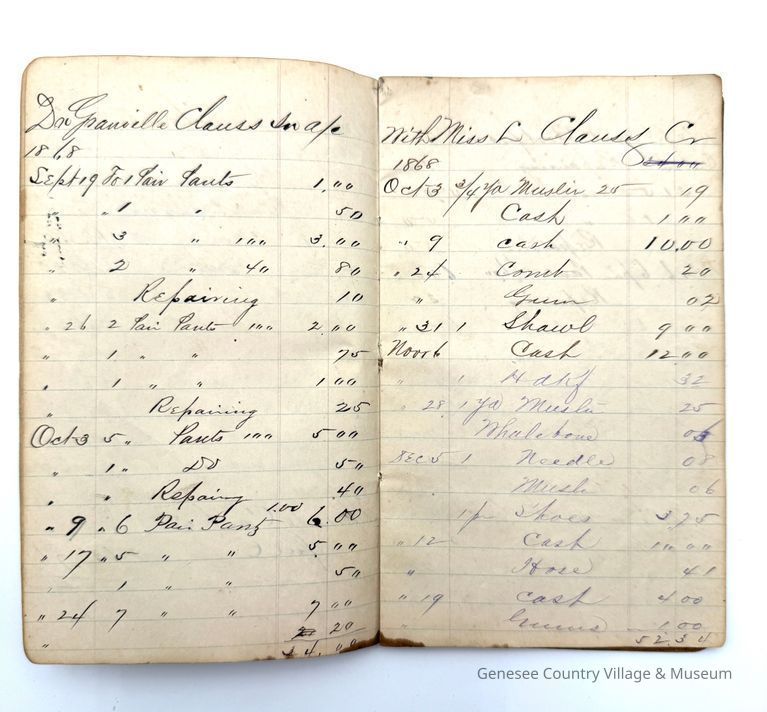 Dr Granville Clauss in ap
1868
Sept 19 To 1 Pair Pants 1.00
" 1 " 50
" 3 " 1 00 3.00
" 2 " 40 80
" Repairing 10
" 26 2 Pair Pants 1 00 2.00
" 1 " " 75
" 1 " " 1 00
" Repairing 25
Oct 3 5 " Pants 1 00 5 00
" 1 " DO 50
" " Repairing 40
" 9 " 6 Pair Pants 1.00 6.00
" 17 " 5 " " 5 00
" 1 " " 50
" 24 7 " " 7 00
" 20
34.00
With Miss L Clauss Cr
1868
Oct 3 3/4 Yd Muslin 25 19
Cash 1 00
" 9 cash 10,00
" 24 Comb 20
" Gum 02
" 31 1 Shawl 9 00
Nov 6 Cash 12 00
" 1 Hdkf 32
" 28 1 Yd Muslin 25
Whalebone 05
DEC 5 1 Needle 08
Muslin 06
1 pr Shoes 3 75
" 12 Cash 10 00
" Hose 41
" 19 cash 4 00
Gums 1.00
52.34
Genesee Country Village & Museum